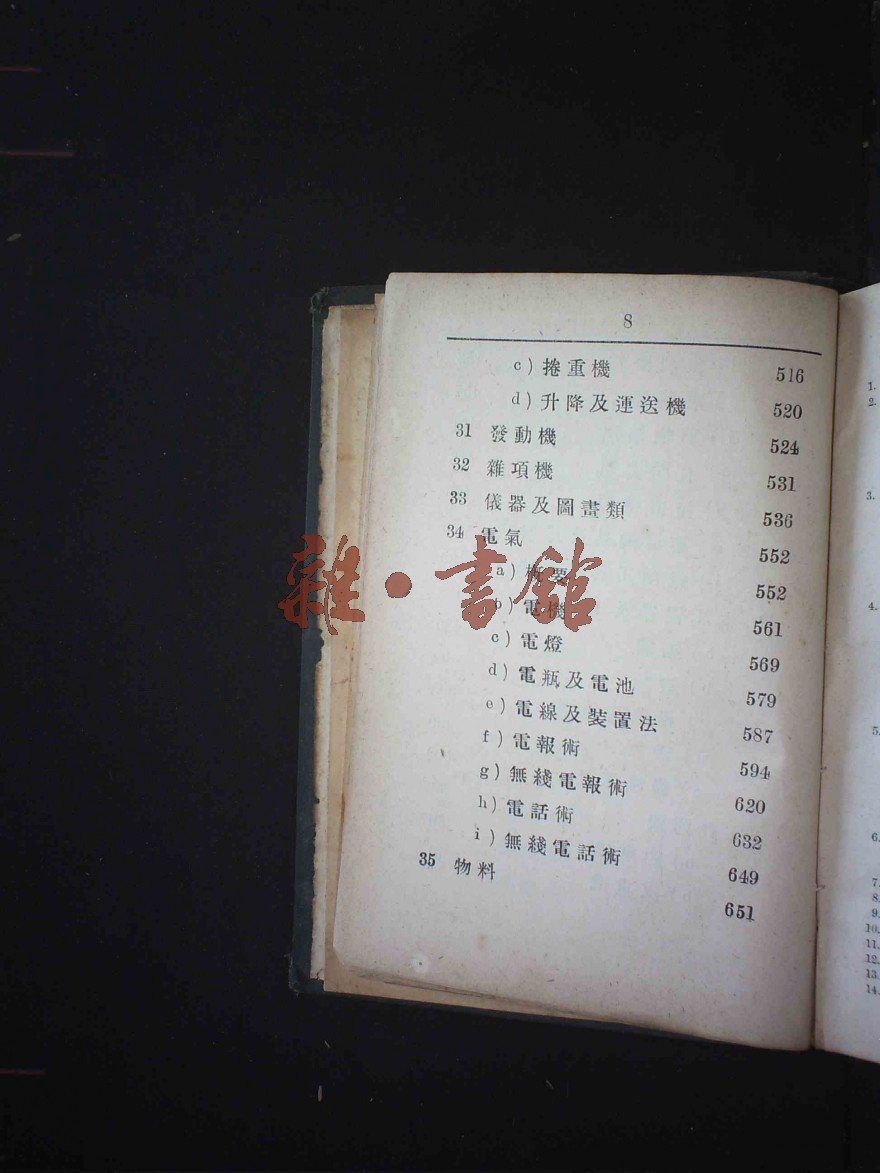 8
c) 捲重機 516
d) 升降及運送機 520
31 發動機 524
32 雜項機 531
33 儀器及圖畫類 536
34 電氣 552
a) 概要 552
b) 電機 561
c) 電燈 569
d) 電瓶及電池 579
e) 電線及裝置法 587
f) 電報術 594
g) 無綫電報術 620
h) 電話術 632
i) 無綫電話術 649
35 物料 651
雜·書館
1.
2.
3.
4.
5.
6.
7.
8.
9.
10.
11.
12.
13.
14.